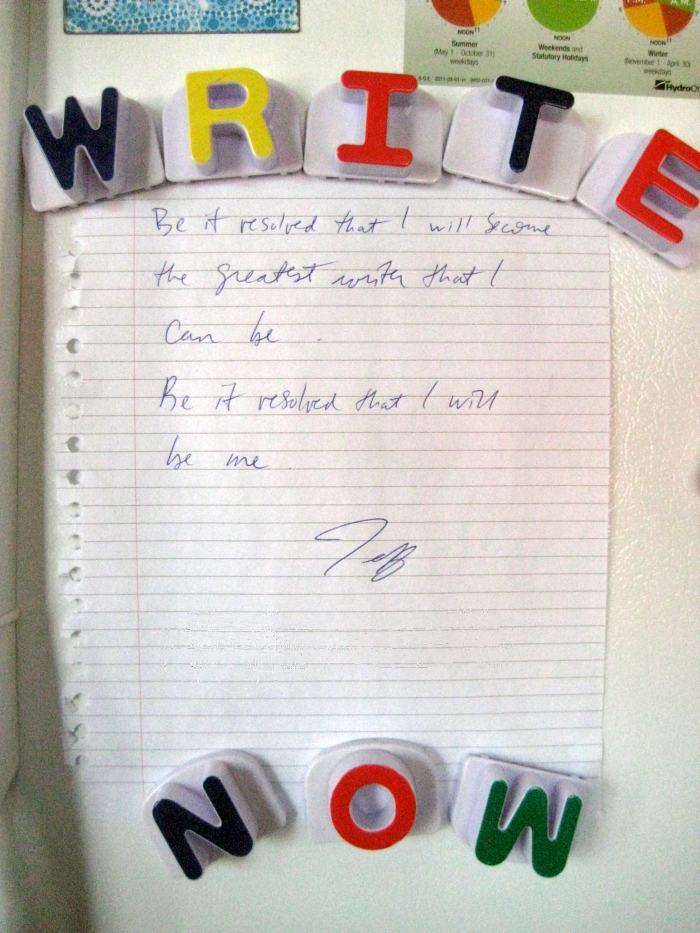 P.M. A.M.
NOON NOON NOON
Summer
(May 1 - October 31)
weekdays
Weekends and
Statutory Holidays
Winter
(November 1 - April 30)
weekdays
HydroOt
WRITE
Be it resolved that I will become
the greatest writer that I
can be.
Be it resolved that I will
be me.
Jeff
NOW